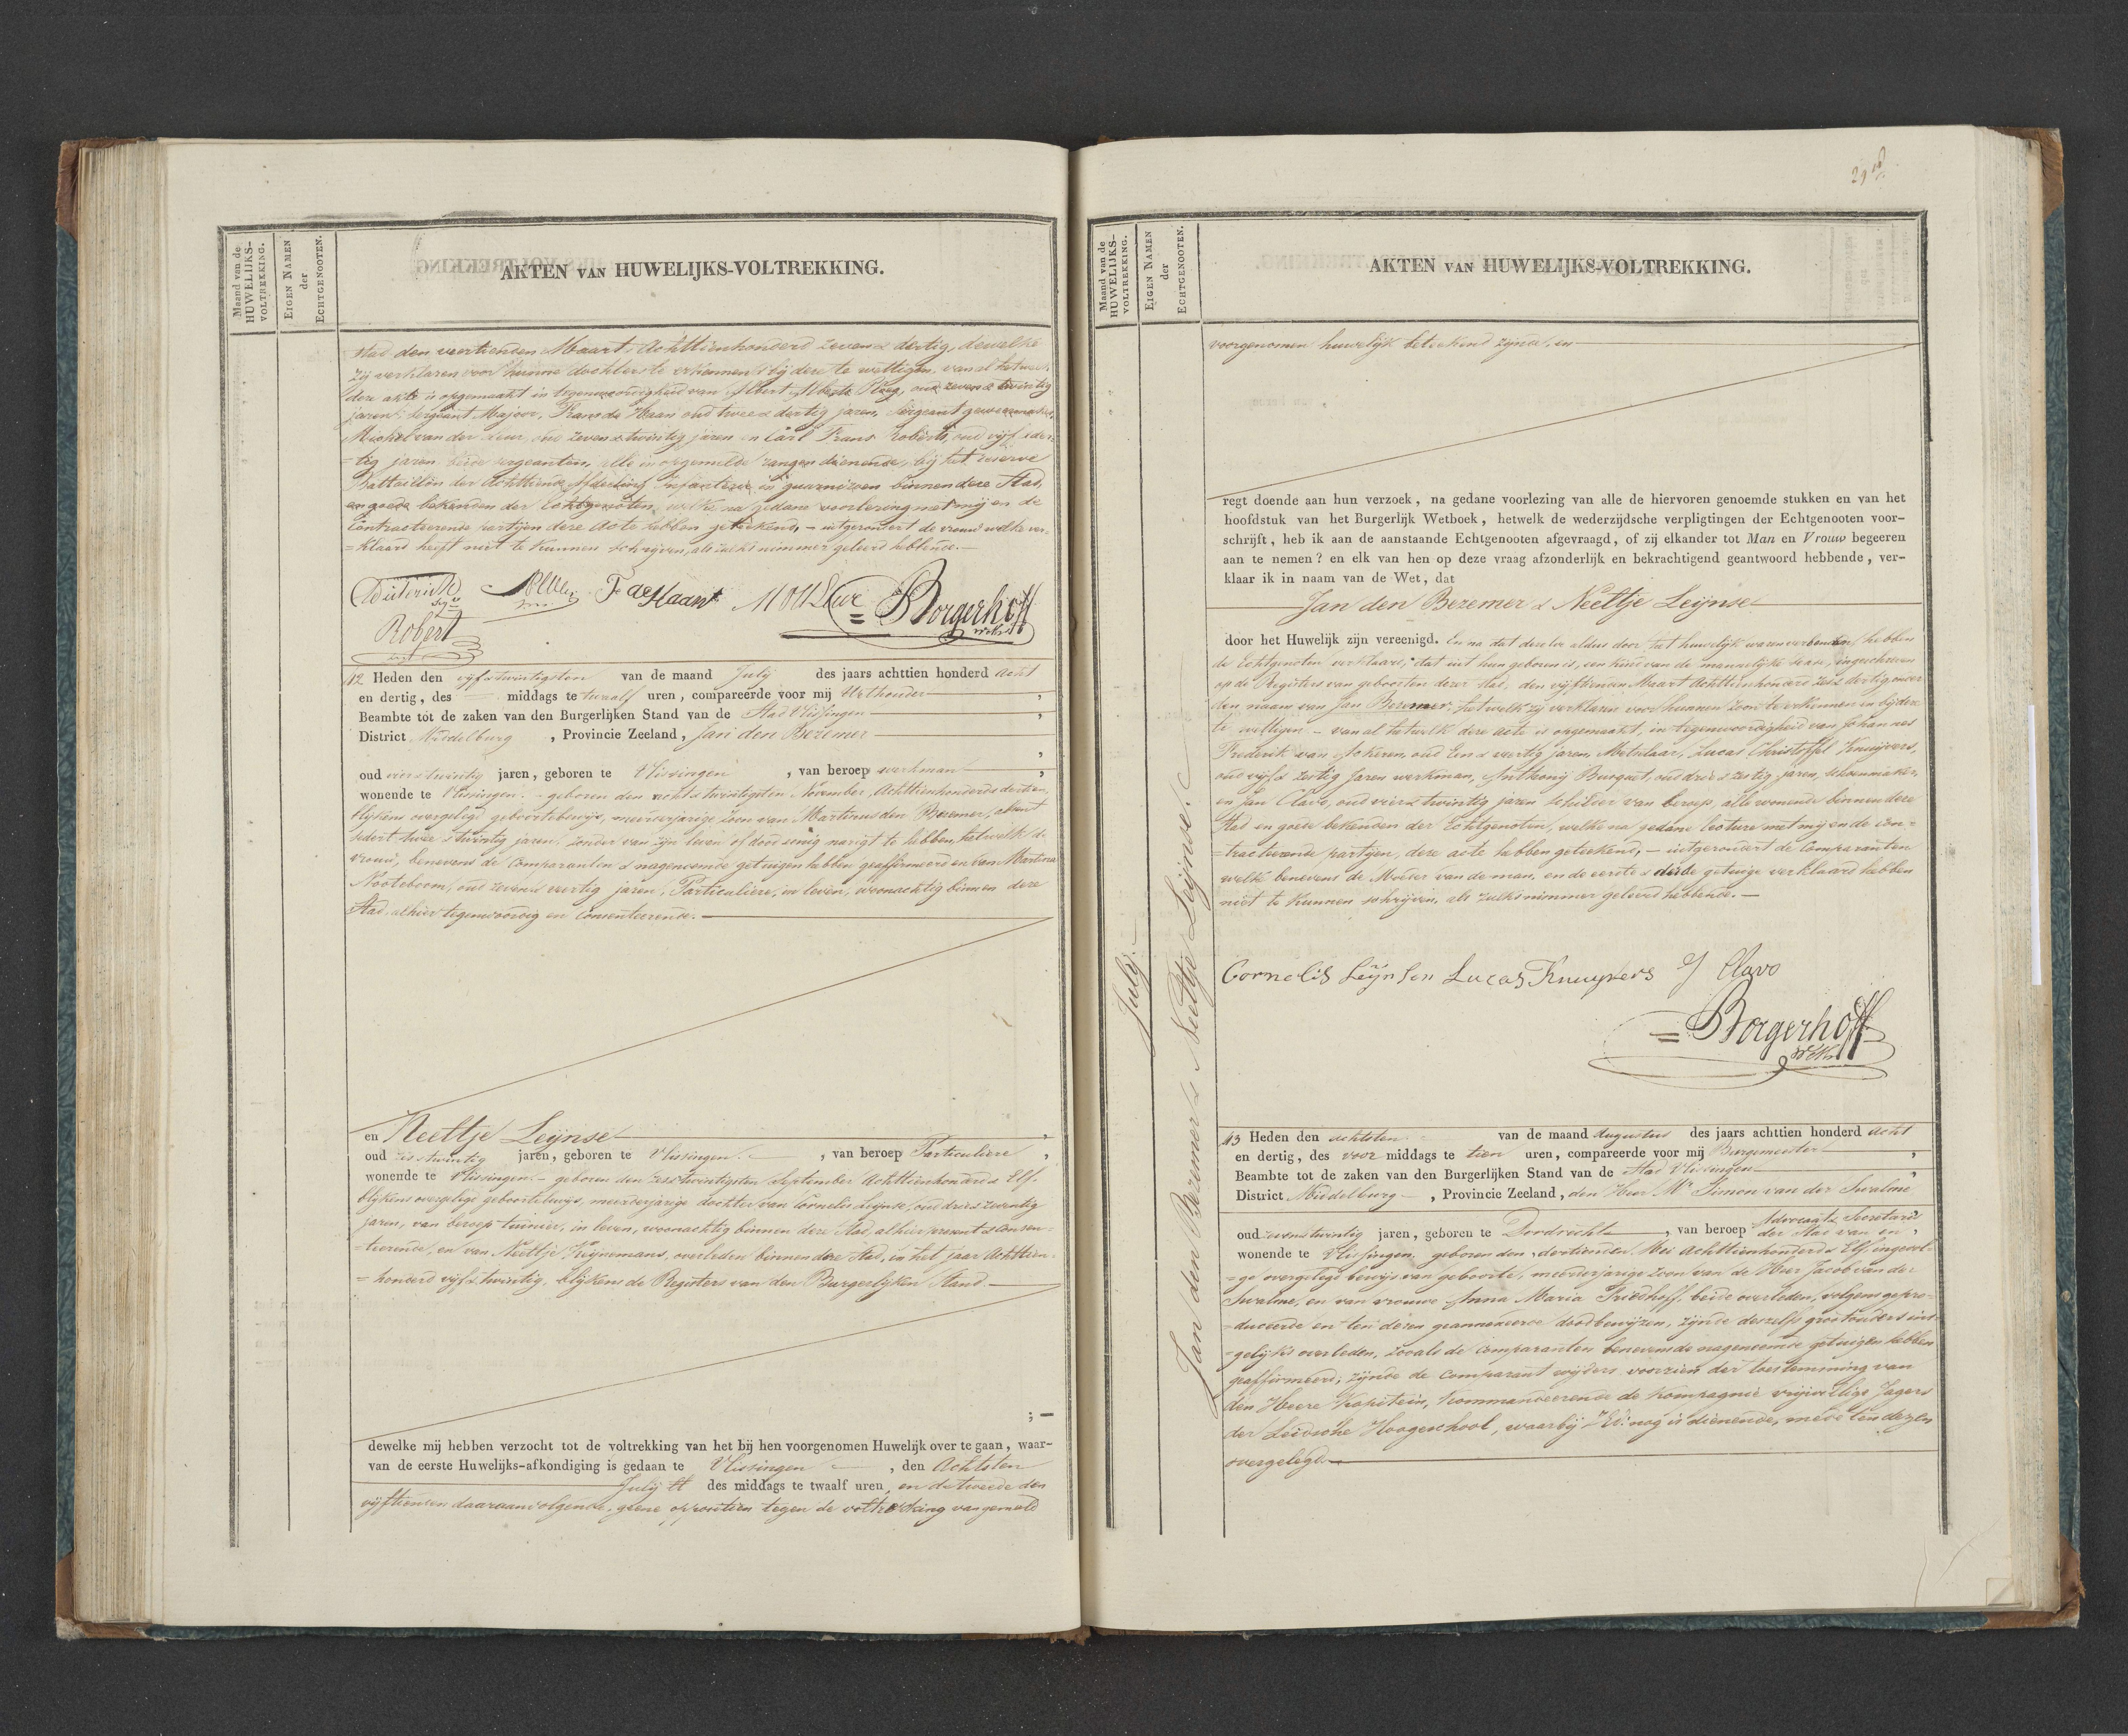 Maand van de
HUWELIJKS-
VOLTREKKING.
EIGEN NAMEN
der
ECHTGENOOTEN.
AKTEN VAN HUWELIJKS-VOLTREKKING.
stad den veertienden Maart Achttienhonderd zeven & dertig, dewelke
zij verklaren voor hunne dochter te erkennen & bij deze te wettigen, van al hetwelk
deze akte is opgemaakt in tegenwoordigheid van Albert Alberts Ploeg, oud zeven & twintig
jaren, sergeant Majoor, Frans de Haan oud twee & dertig jaren, sergeant geweermaker,
Michel van der Leur, oud zeven & twintig jaren en Carl Frans Roberts, oud vijf & der-
=tig jaren beide sergeanten, alle in opgemelde rangen dienende, bij het reserve
Battaillon der Achttiende Afdeeling Infanterie in guarnizoen binnen deze Stad,
en goede bekenden der Echtgenooten, welke na gedane voorlezing met mij en de
Contracteerende partijen deze Acte hebben geteekend, – uitgezondert de vrouw welke ver-
=klaard heeft niet te kunnen schrijven, als zulks nimmer geleerd hebbende.—
Dieterich F de Haan M v d Leur Borgerhoff
Robert
42 Heden den vijf & twintigsten van de maand Julij des jaars achttien honderd Acht
en dertig, des middags te twaalf uren, compareerde voor mij Wethouder ,
Beambte tot de zaken van den Burgerlijken Stand van de Stad Vlissingen ,
District Middelburg , Provincie Zeeland, Jan den Bezemer
,
oud vier & twintig jaren, geboren te Vlissingen , van beroep werkman ,
wonende te Vlissingen. – geboren den acht & twintigsten November, Achttienhonderd & dertien,
blijkens overgelegd geboortebewijs, meerderjarige Zoon van Martinus den Bezemer, absent
sedert twee & twintig jaren, zonder van zijn leven of dood eenig narigt te hebben, hetwelk de
vrouw, benevens de Comparanten & nagenoemde getuigen hebben geaffirmeerd en van Martina
Nooteboom, oud zeven & veertig jaren, Particuliere, in leven, woonachtig binnen deze
Stad, alhier tegenwoordig en Consenteerende.—
en Neeltje Leijnse ,
oud zes & twintig jaren, geboren te Vlissingen. , van beroep Particuliere ,
wonende te Vlissingen – geboren den zes & twintigsten September Achttienhonderd & Elf.
blijkens overgelegd geboortebewijs, meerderjarige dochter van Cornelis Leijnse, oud drie & zeventig
jaren, van beroep tuinier, in leven, woonachtig binnen deze Stad, alhier present & consen-
=teerende, en van Neeltje Krijnemans, overleden binnen deze Stad, in het jaar Achttien-
=honderd vijf & twintig, blijkens de Registers van den Burgerlijken Stand.—
; —
dewelke mij hebben verzocht tot de voltrekking van het bij hen voorgenomen Huwelijk over te gaan, waar-
van de eerste Huwelijks-afkondiging is gedaan te Vlissingen , den Achtsten
Julij ll des middags te twaalf uren, en de tweede den
vijftienden daaraanvolgende, geene oppositien tegen de voltrekking van gemeld
Maand van de
HUWELIJKS-
VOLTREKKING.
EIGEN NAMEN
der
ECHTGENOOTEN.
AKTEN VAN HUWELIJKS-VOLTREKKING.
Julij.
Jan den Bezemer & Neeltje Leijnse.
voorgenomen huwelijk beteekend zijnde, en
regt doende aan hun verzoek, na gedane voorlezing van alle de hiervoren genoemde stukken en van het
hoofdstuk van het Burgerlijk Wetboek, hetwelk de wederzijdsche verpligtingen der Echtgenooten voor-
schrijft, heb ik aan de aanstaande Echtgenooten afgevraagd, of zij elkander tot Man en Vrouw begeeren
aan te nemen? en elk van hen op deze vraag afzonderlijk en bekrachtigend geantwoord hebbende, ver-
klaar ik in naam van de Wet, dat
Jan den Bezemer & Neeltje Leijnse
door het Huwelijk zijn vereenigd. En na dat dezelve aldus door het huwelijk waren verbonden hebben
de Echtgenoten verklaard, dat uit hun geboren is, een kind van de mannelijke sexe, ingeschreven
op de Registers van geboorten dezer stad, den vijftienden Maart Achttienhonderd zes & dertig onder
den naam van Jan Bezemer, hetwelk zij verklaren voor hunnen zoon te erkennen en bij deze
te wettigen – van al hetwelk deze acte is opgemaakt, in tegenwoordigheid van Johannes
Frederik van Sokeren, oud Een & veertig jaren, Metselaar, Lucas Christoffel Knuijvers,
oud vijf & zestig jaren werkman, Anthonij Busquet, oud drie & zestig jaren, schoenmaker
en Jan Clavo, oud vier & twintig jaren schilder van beroep, alle wonende binnen deze
Stad en goede bekenden der Echtgenoten, welke na gedane lecture met mij en de con-
=tracteerende partijen, deze acte hebben geteekend, – uitgezondert de Comparanten
welke benevens de Moeder van de man, en de eerste & derde getuige verklaard hebben
niet te kunnen schrijven, als zulks nimmer geleerd hebbende.—
Cornelis Leijnsen Lucas Knuypers J Clavo
Borgerhoff
43 Heden den achtsten van de maand Augustus des jaars achttien honderd acht
en dertig, des voor middags te tien uren, compareerde voor mij Burgemeester ,
Beambte tot de zaken van den Burgerlijken Stand van de Stad Vlissingen ,
District Middelburg , Provincie Zeeland, den Heer Mr Simon van der Swalme
oud zeven & twintig jaren, geboren te Dordrecht , van beroep Advocaat & Secretaris
der Stad van en ,
wonende te Vlissingen. geboren den dertienden Mei Achttienhonderd & Elf ingevol-
=ge overgelegd bewijs van geboorte, meerderjarige zoon van de Heer Jacob van der
Swalme, en van vrouwe Anna Maria Friedhoff, beide overleden, volgens gepro-
=duceerde en ten dezen geannexeerde doodbewijzen, zijnde deszelfs grootouders ins-
=gelijks overleden, zooals de Comparanten benevens de nagenoemde getuigen hebben
geaffirmeerd; zijnde de Comparant wijders voorzien der toestemming van
den Heere Kapitein, Kommandeerende de Kompagnie vrijwillige Jagers
der Leidsche Hoogeschool, waarbij ZEd: nog is dienende, mede ten dezen
overgelegd.—